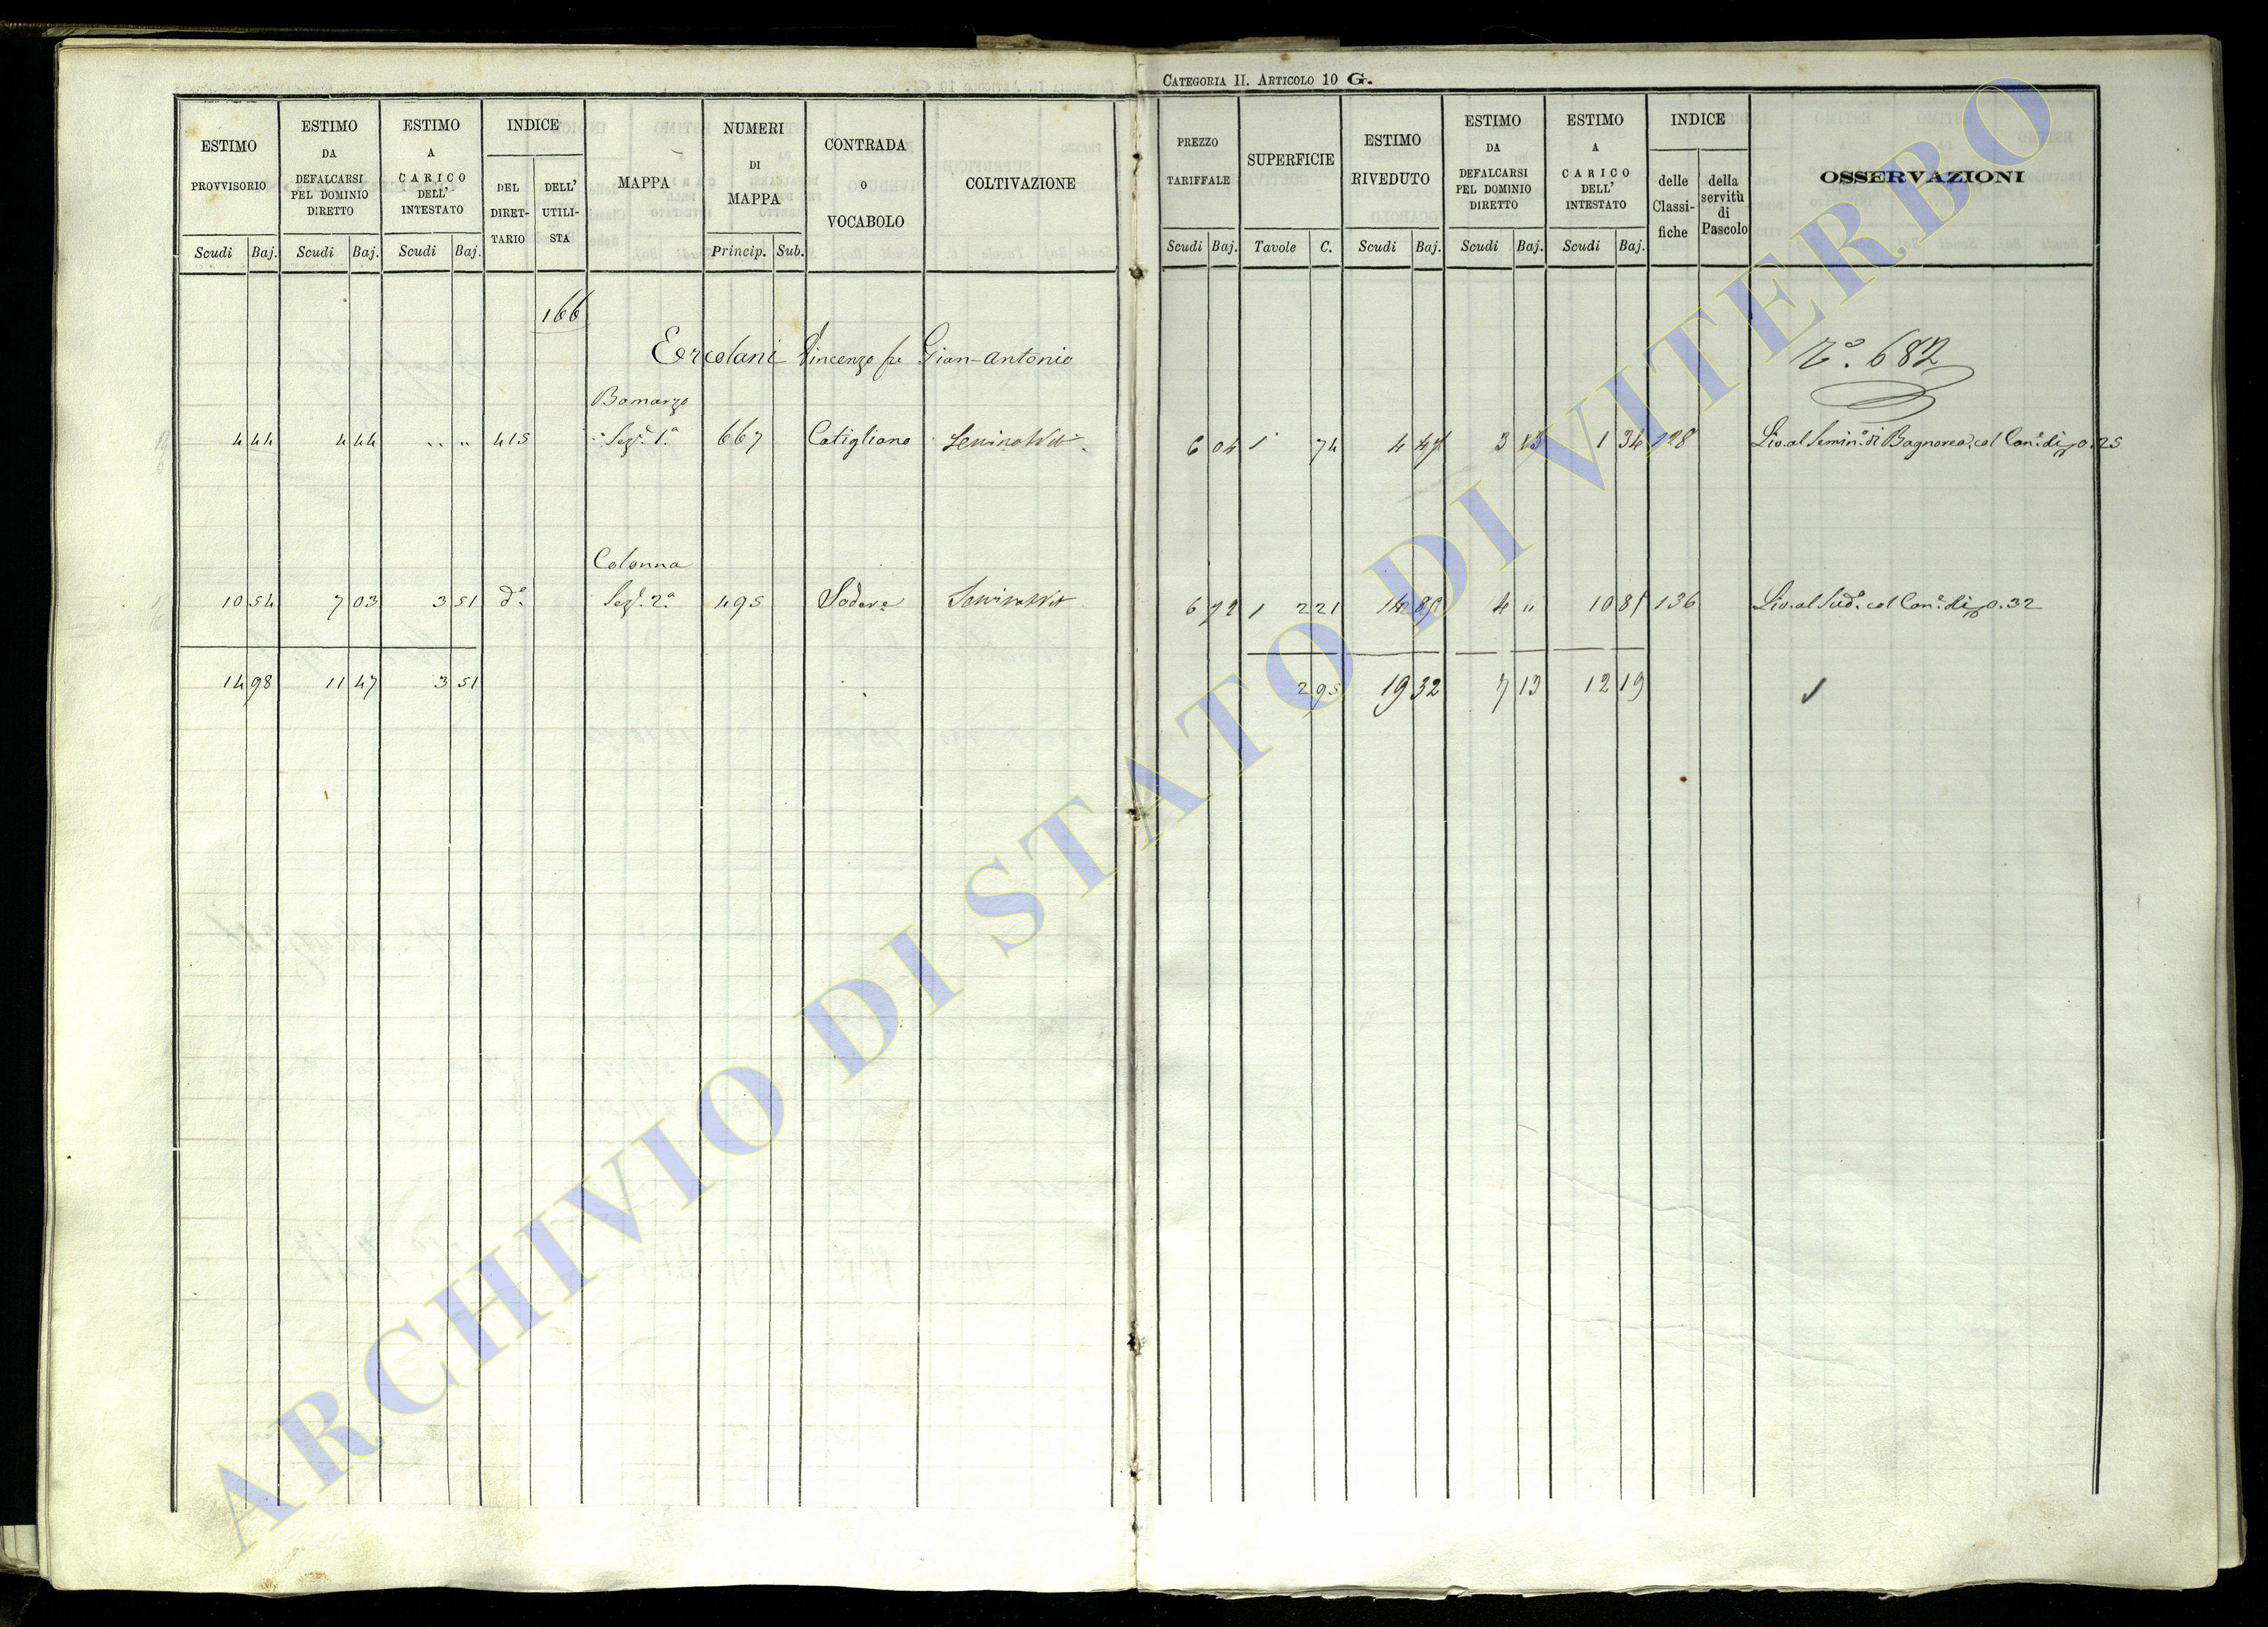 CATEGORIA II. ARTICOLO 10 G.
ESTIMO PROVVISORIO
Scudi Baj.
ESTIMO DA DEFALCARSI PEL DOMINIO DIRETTO
Scudi Baj.
ESTIMO A CARICO DELL' INTESTATO
Scudi Baj.
INDICE
DEL DIRET-TARIO
DELL' UTILI-STA
MAPPA
NUMERI DI MAPPA
Princip. Sub.
CONTRADA O VOCABOLO
COLTIVAZIONE
PREZZO TARIFFALE
Scudi Baj.
SUPERFICIE
Tavole C.
ESTIMO RIVEDUTO
Scudi Baj.
ESTIMO DA DEFALCARSI PEL DOMINIO DIRETTO
Scudi Baj.
ESTIMO A CARICO DELL' INTESTATO
Scudi Baj.
INDICE
delle Classi-fiche
della servitù di Pascolo
OSSERVAZIONI
166
Ercolani Vincenzo fu Gian-Antonio
N.° 682
Bomarzo
4 44 4 44 " " 415 Sez.e 1.a 667 Catigliano 6 04 1 74 4 47 3 13 1 34 128 Liv. al Semin.o di Bagnorea col Can.e di 0.25
Colonna
10 54 7 03 3 51 d.o Sez.e 2.a 495 6 72 1 2 21 14 85 4 " 10 85 136 Liv. al Sud.o col Can.e di 0.32
14 98 11 47 3 51 2 95 19 32 7 13 12 19
ARCHIVIO DI STATO DI VITERBO